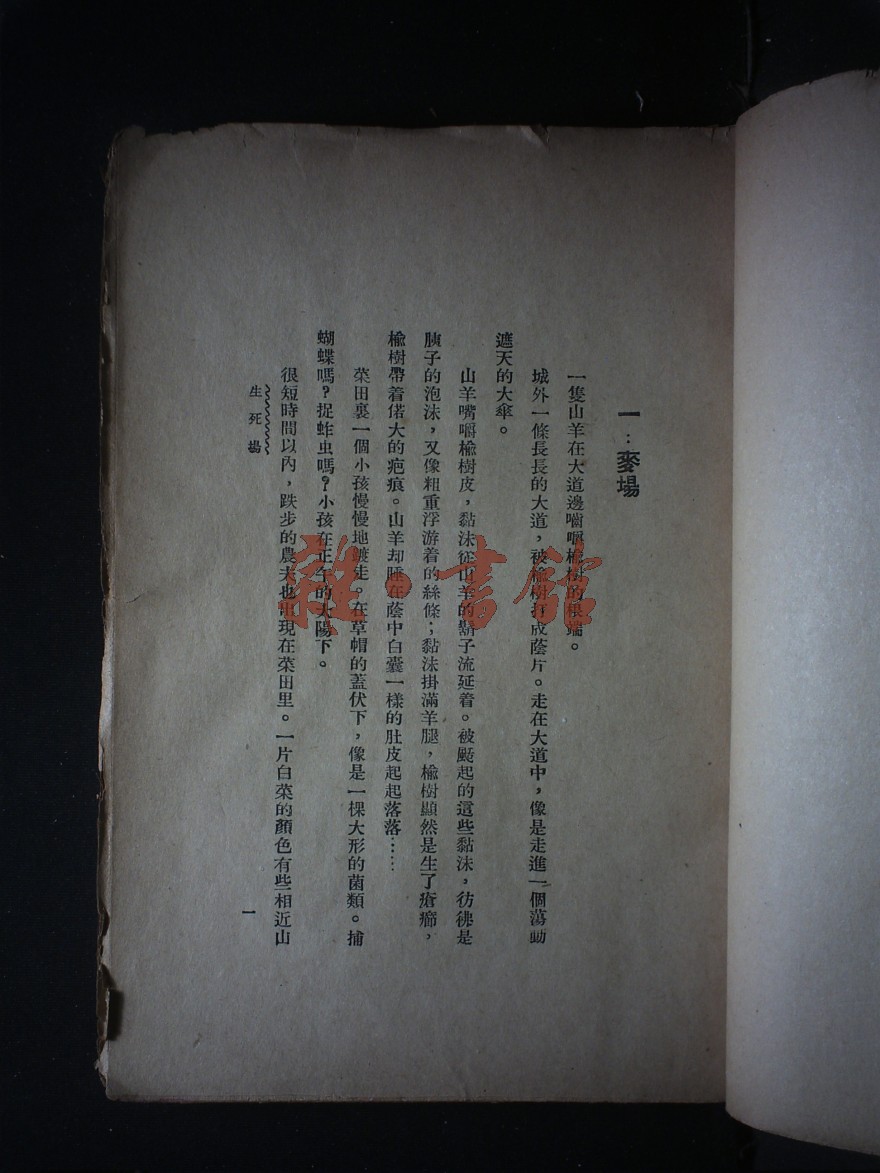 一：麥場
一隻山羊在大道邊嚙嚼榆樹的根端。
城外一條長長的大道，被榆樹打成蔭片。走在大道中，像是走進一個蕩動
遮天的大傘。
山羊嘴嚼榆樹皮，黏沫從山羊的鬍子流延着。被颳起的這些黏沫，彷彿是
胰子的泡沫，又像粗重浮游着的絲條；黏沫掛滿羊腿，榆樹顯然是生了瘡癤，
榆樹帶着偌大的疤痕。山羊却睡在蔭中白囊一樣的肚皮起起落落……
菜田裏一個小孩慢慢地踱走。在草帽的蓋伏下，像是一棵大形的菌類。捕
蝴蝶嗎？捉蚱虫嗎？小孩在正午的太陽下。
很短時間以內，跌步的農夫也出現在菜田里。一片白菜的顏色有些相近山
生死場
一
雜·書館